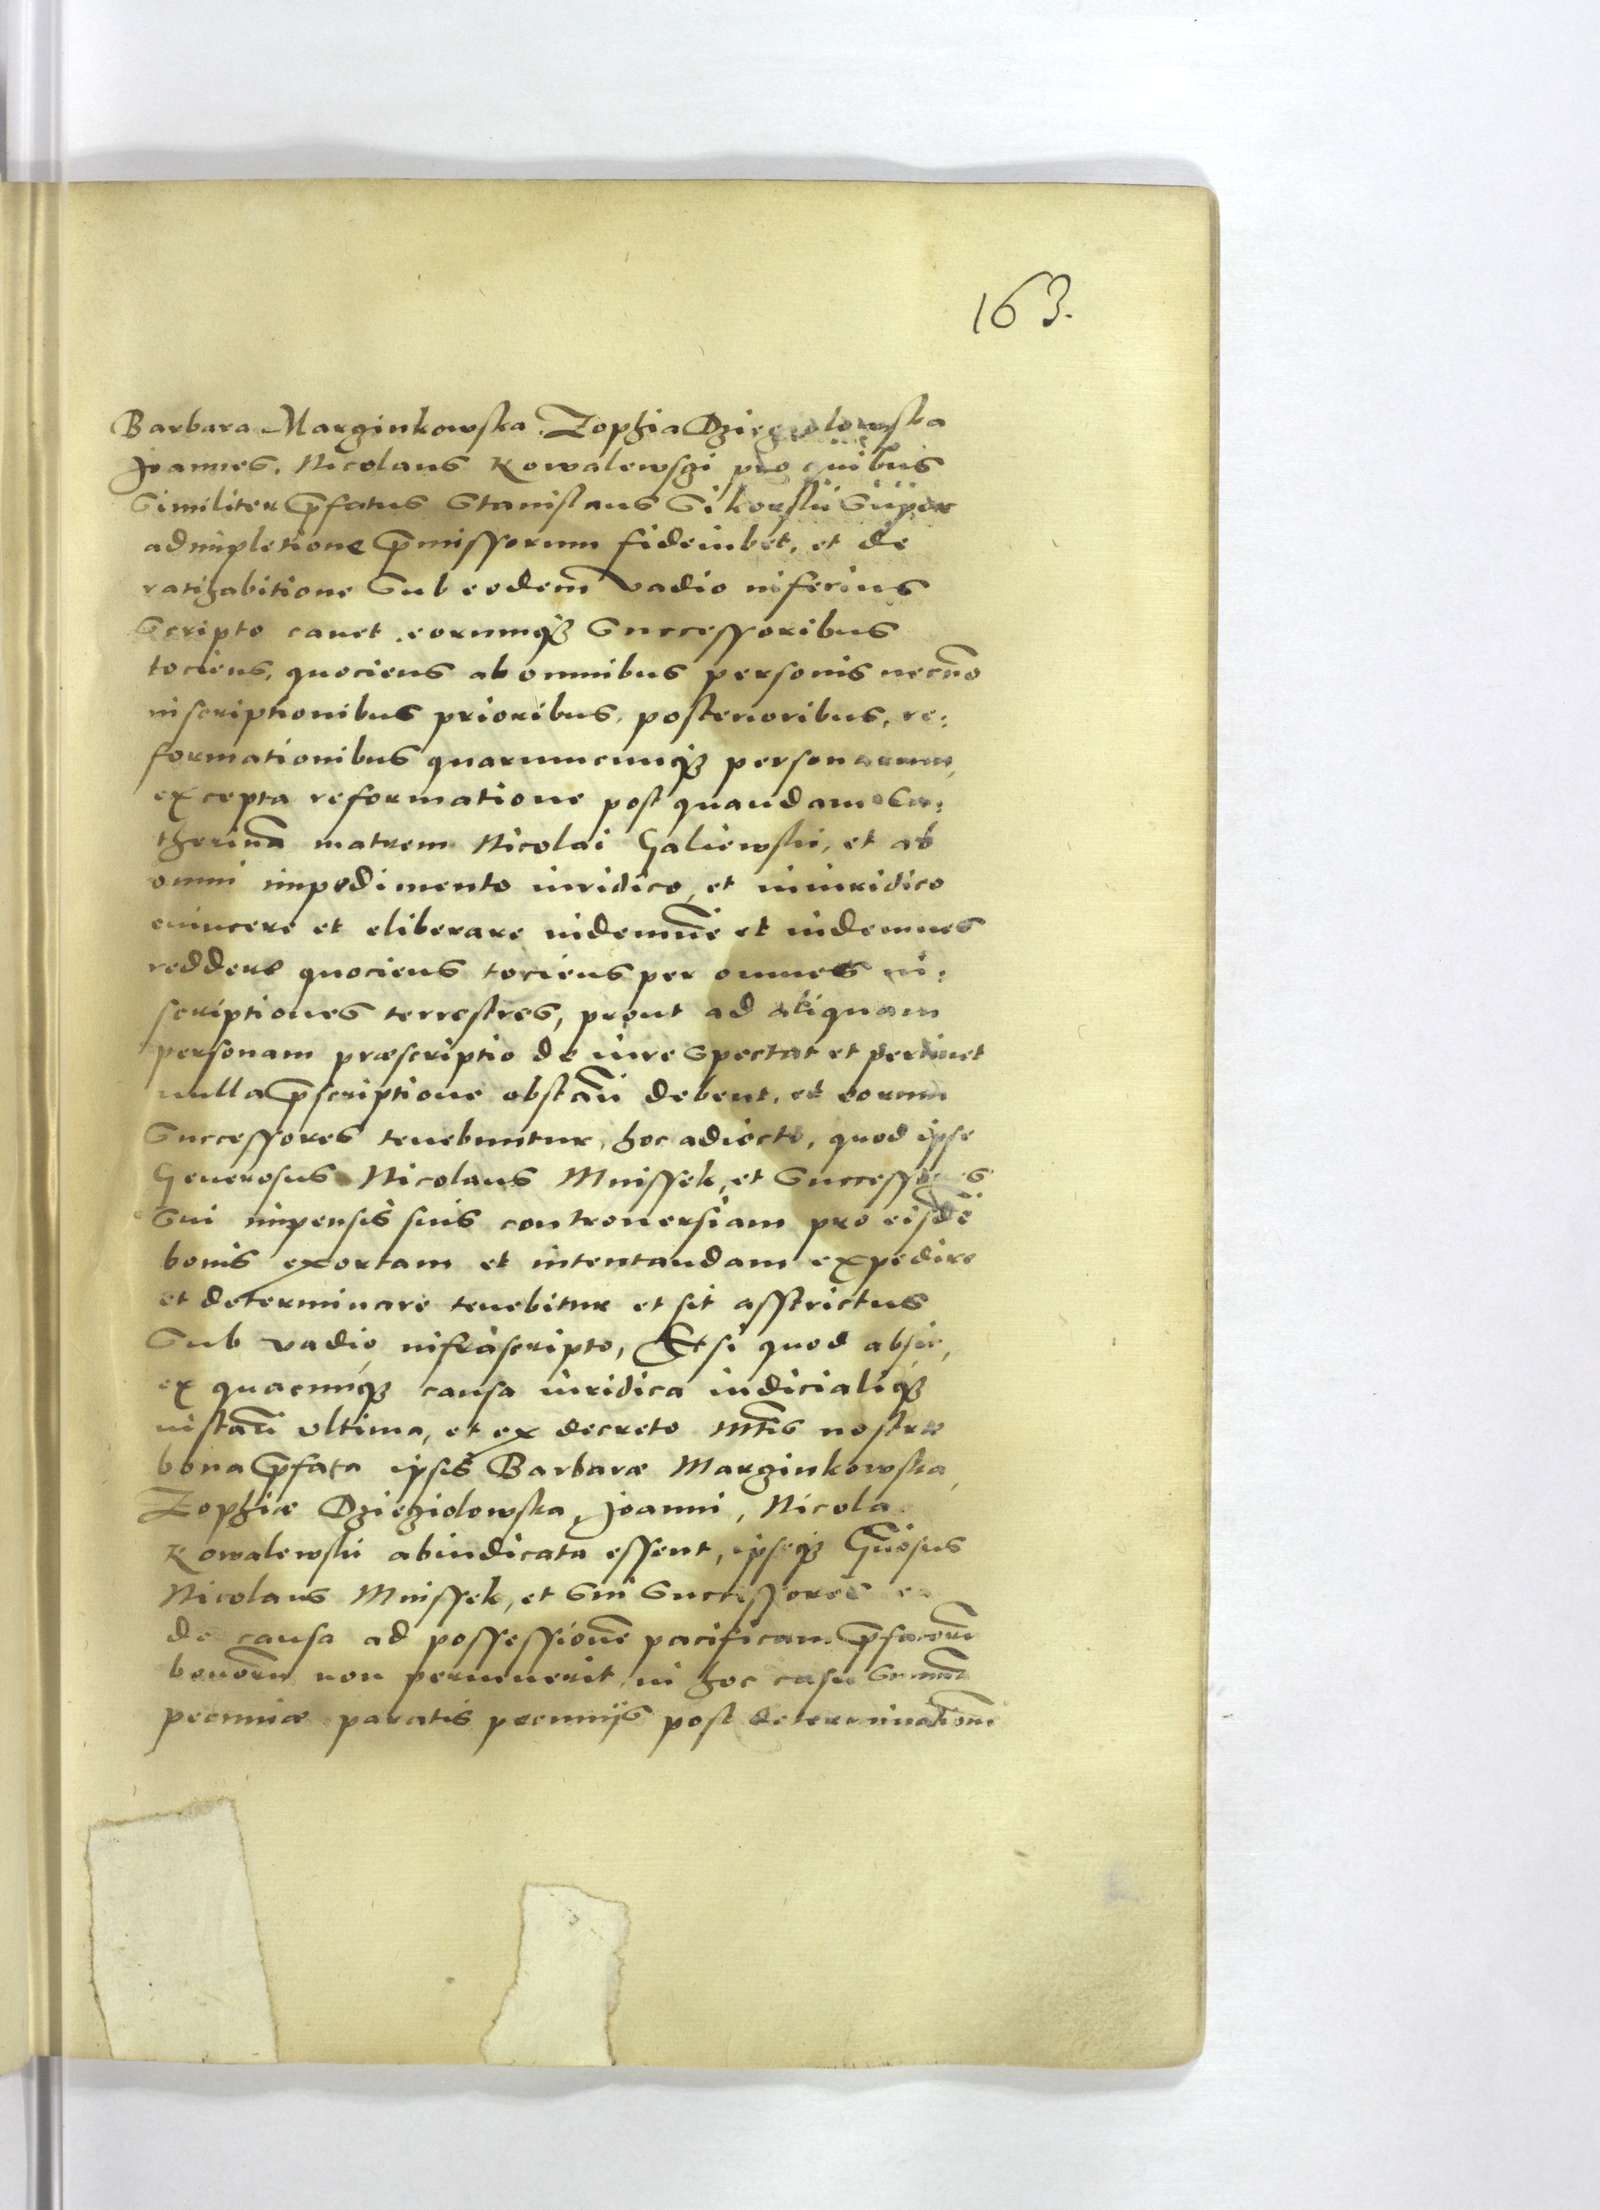 163.
Barbara Marzinkowska Zophia Dziezolowska
Joannes, Nicolaus Kowalewsgi pro quibus
Similiter p̄fatus Stanislaus Sikorskii Super
adimpletione p̄missorum fideiubet, et de
ratihabitione Sub eodem̄ vadio inferius
Scripto cavet eorumq3 Successoribus
tociens, quociens ab omnibus personis necnō
inscriptionibus prioribus, posterioribus, re:
formationibus quarumcumq3 personarum,
excepta reformatione post quandam Ca:
therinā matrem Nicolai Galiewskii, et ab
omni impedimento iuridico, et iniuridico
evincere et eliberare indemnē et indemnes
reddere quociens tociens per omnes in:
scriptiones terrestres, prout ad aliquam
personam præscriptio de iure Spectat et pertinet
nulla p̄scriptione obstāti debent, et eorum
Successores tenebuntur, hoc adiecto, quod ipse
Generosus Nicolaus Mnissek, et Successores
Sui impensis suis controversiam pro eisdē
bonis exortam et intentandam expedire
et determinare tenebitur et sit asstrictus
Sub vadio infrascripto, Et si quod absit,
ex quacumq3 causa iuridica iudicialiq3
instātī ultima, et ex decreto Mtis nostræ
bona p̄fata ipsis Barbaræ Marzinkowska,
Zophiæ Dzieziolowska, Joanni, Nicola
Kowalewskii abiudicata essent, ipseq3 Gn̄osus
Nicolaus Mnissek, et Sui Successores ea
de causa ad possessionē pacificam p̄fatorū
bonorū non pervenerit, in hoc casu Summā
pecuniæ paratis pecuniis post determinationē